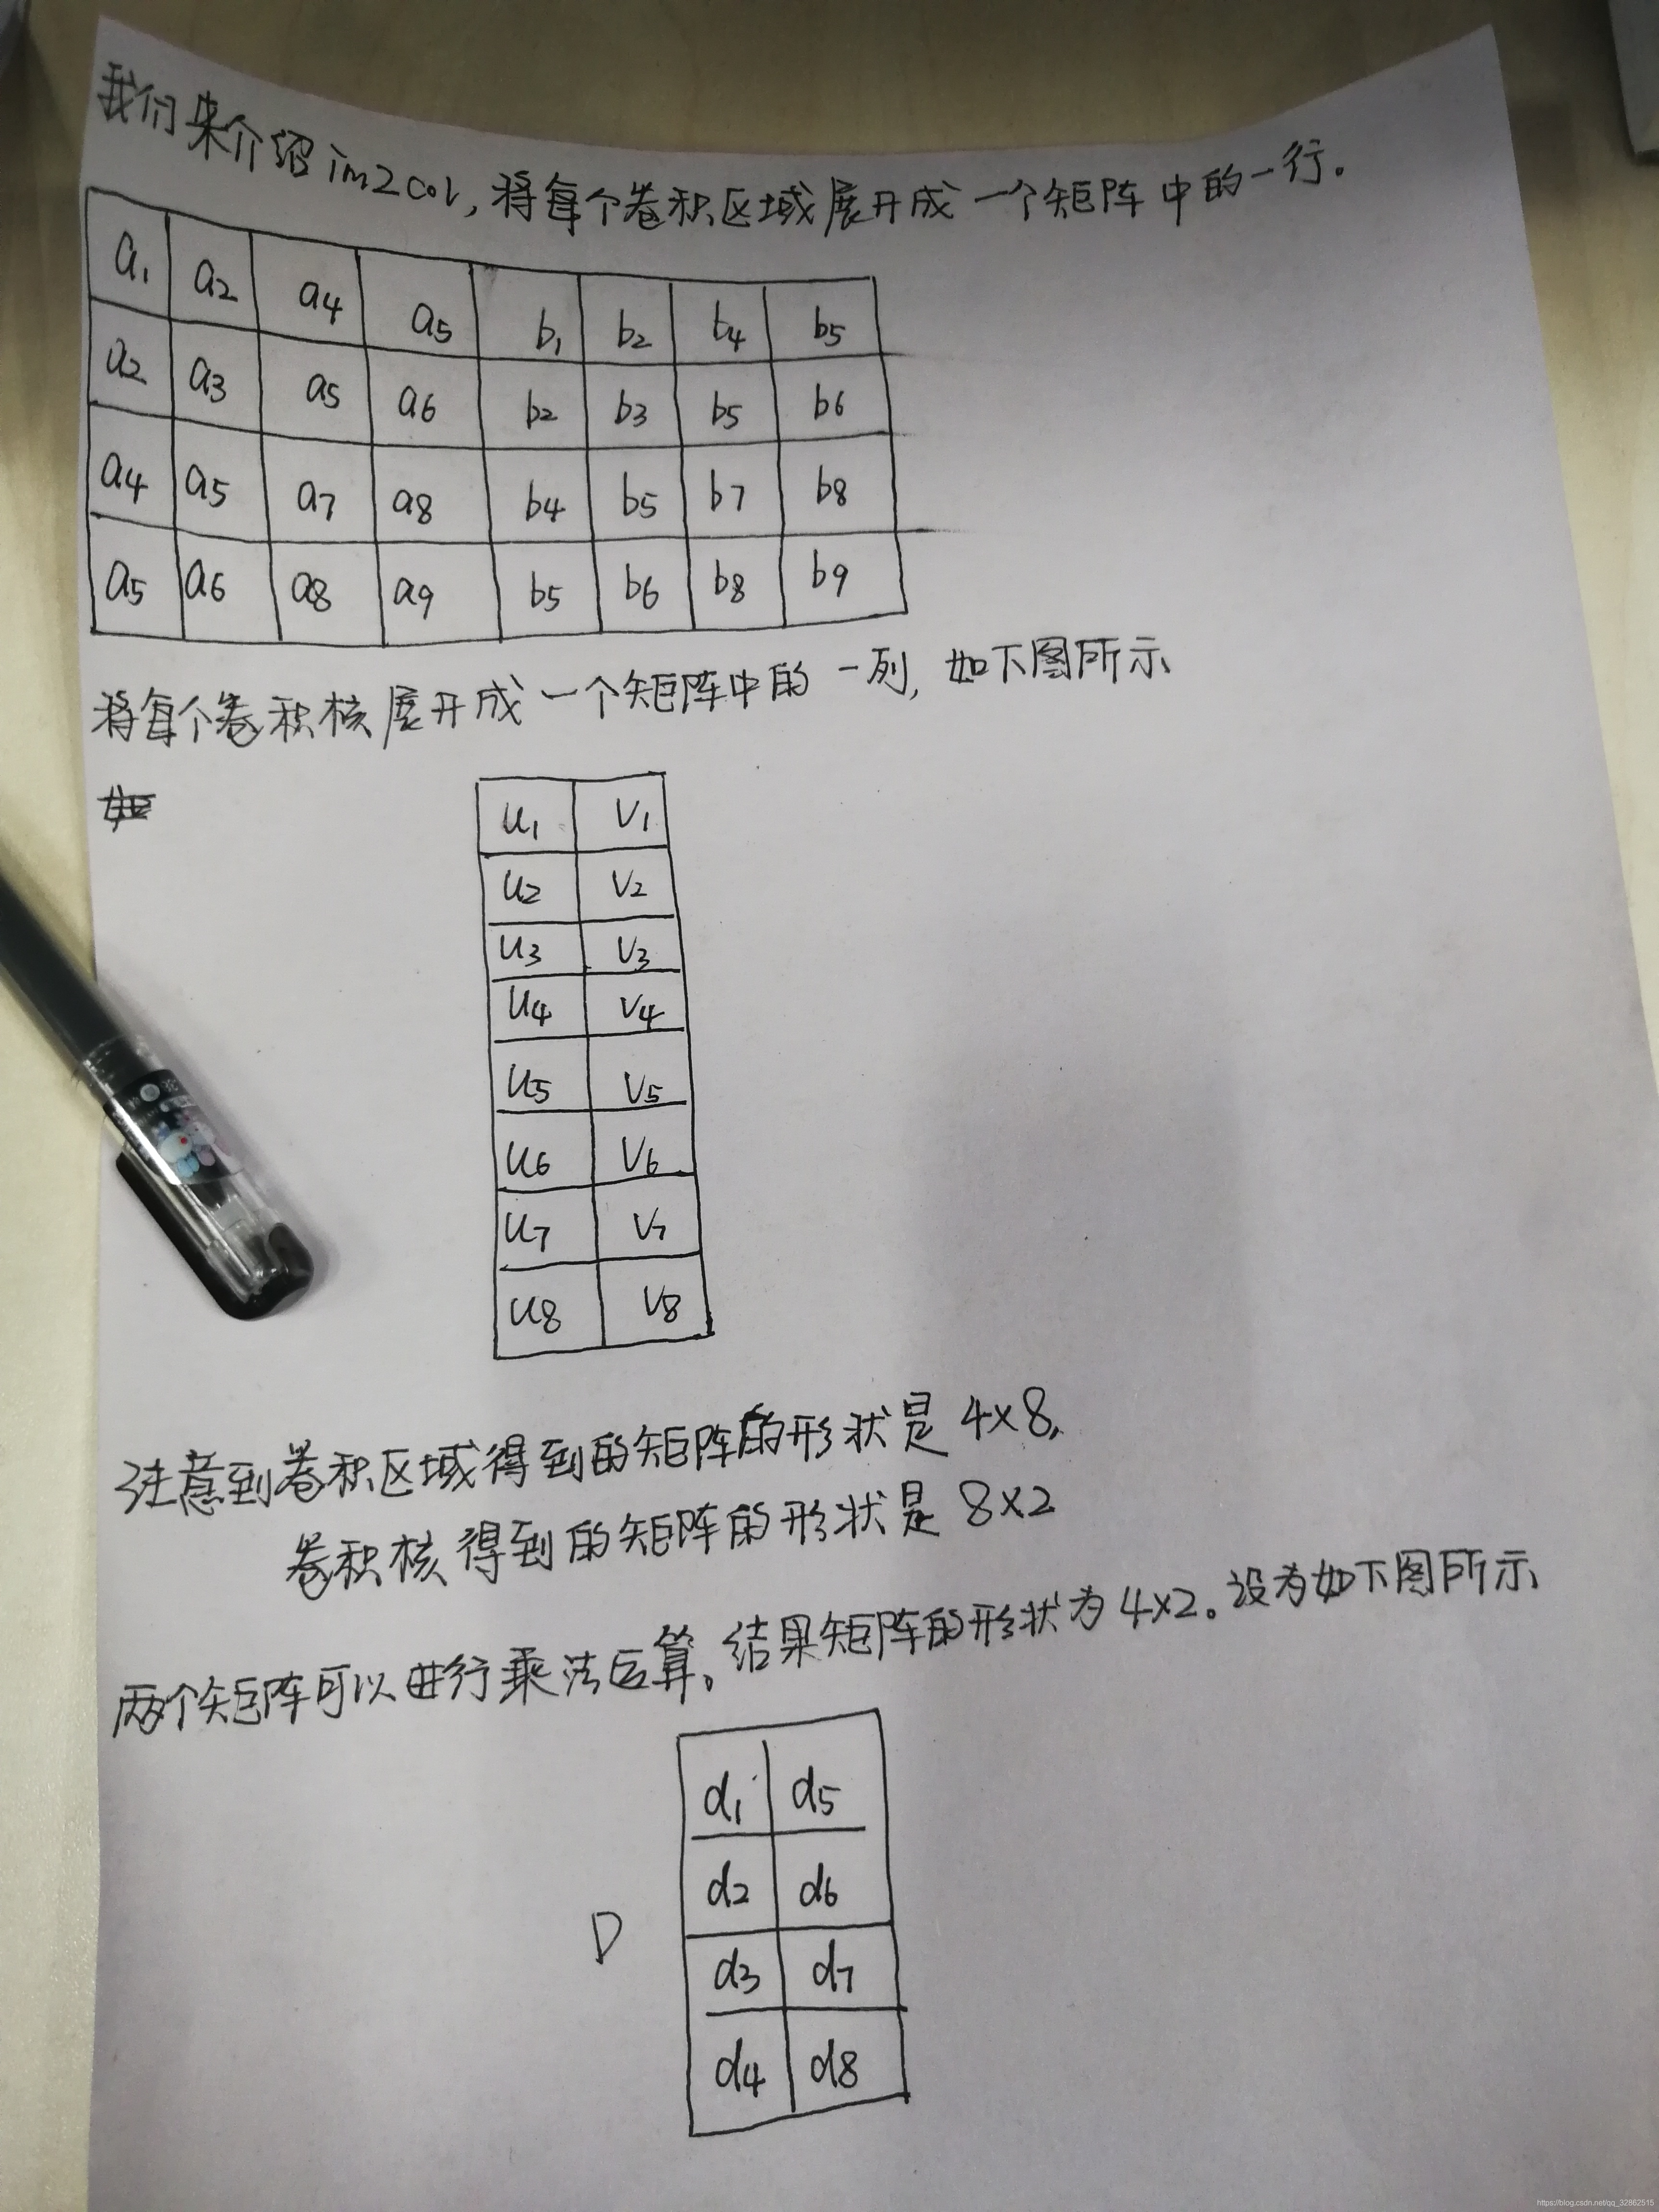 我们来介绍im2col,将每个卷积区域展开成一个矩阵中的一行。
a1 a2 a4 a5 b1 b2 b4 b5
a2 a3 a5 a6 b2 b3 b5 b6
a4 a5 a7 a8 b4 b5 b7 b8
a5 a6 a8 a9 b5 b6 b8 b9
将每个卷积核展开成一个矩阵中的一列,如下图所示
u1 v1
u2 v2
u3 v3
u4 v4
u5 v5
u6 v6
u7 v7
u8 v8
注意到卷积区域得到的矩阵的形状是4×8,
卷积核得到的矩阵的形状是8×2
两个矩阵可以进行乘法运算。结果矩阵的形状为4×2。设为如下图所示
d1 d5
d2 d6
D
d3 d7
d4 d8
https://blog.csdn.net/qq_32862515